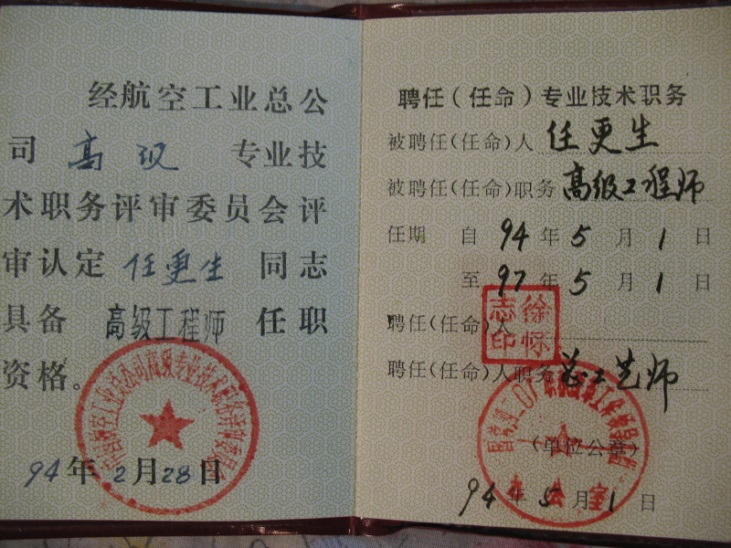 经航空工业总公
司 高级 专业技
术职务评审委员会评
审认定 任更生 同志
具备 高级工程师 任职
资格。
94年2月28日
聘任(任命)专业技术职务
被聘任(任命)人 任更生
被聘任(任命)职务 高级工程师
任期 自 94 年 5 月 1 日
至 97 年 5 月 1 日
聘任(任命)人
徐怀
志印
聘任(任命)人职务 总工艺师
(单位公章)
办公室
94 年 5 月 1 日